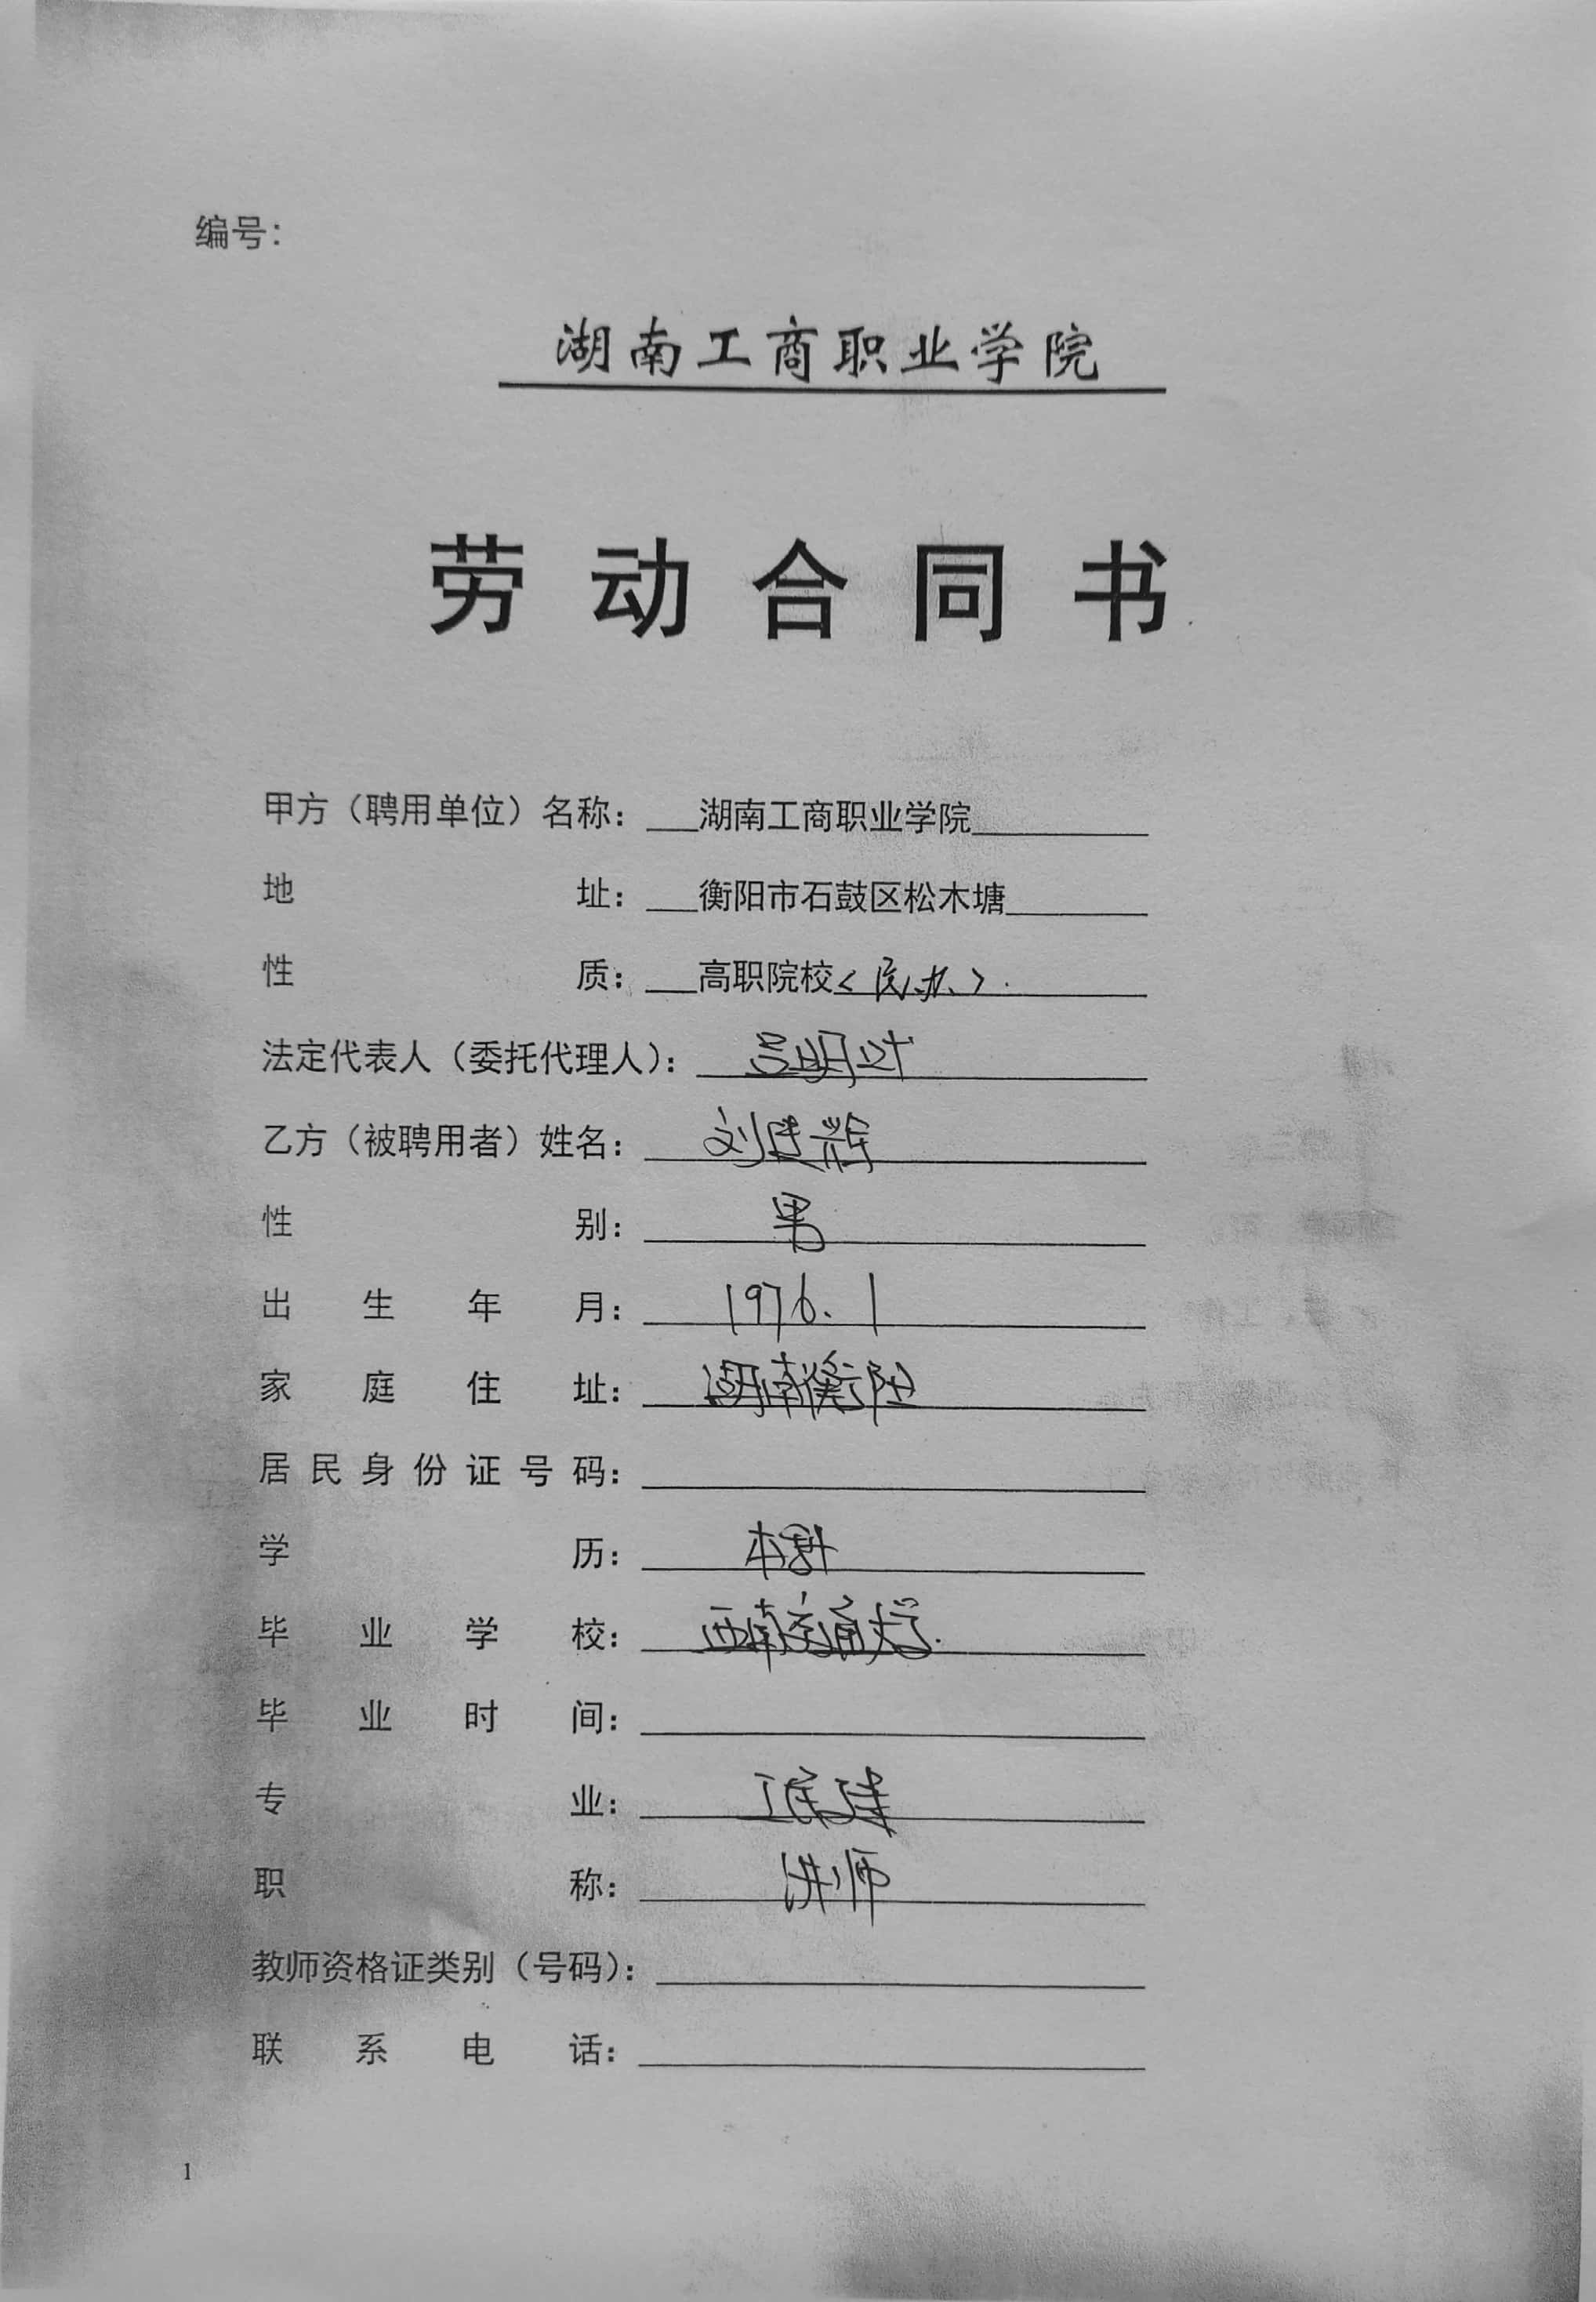 编号：
湖南工商职业学院
劳动合同书
甲方（聘用单位）名称：湖南工商职业学院
地址：衡阳市石鼓区松木塘
性质：高职院校<民办>.
法定代表人（委托代理人）：
乙方（被聘用者）姓名：刘建辉
性别：男
出生年月：1976.1
家庭住址：湖南衡阳
居民身份证号码：
学历：本科
毕业学校：西南交通大学.
毕业时间：
专业：
职称：讲师
教师资格证类别（号码）：
联系电话：
1